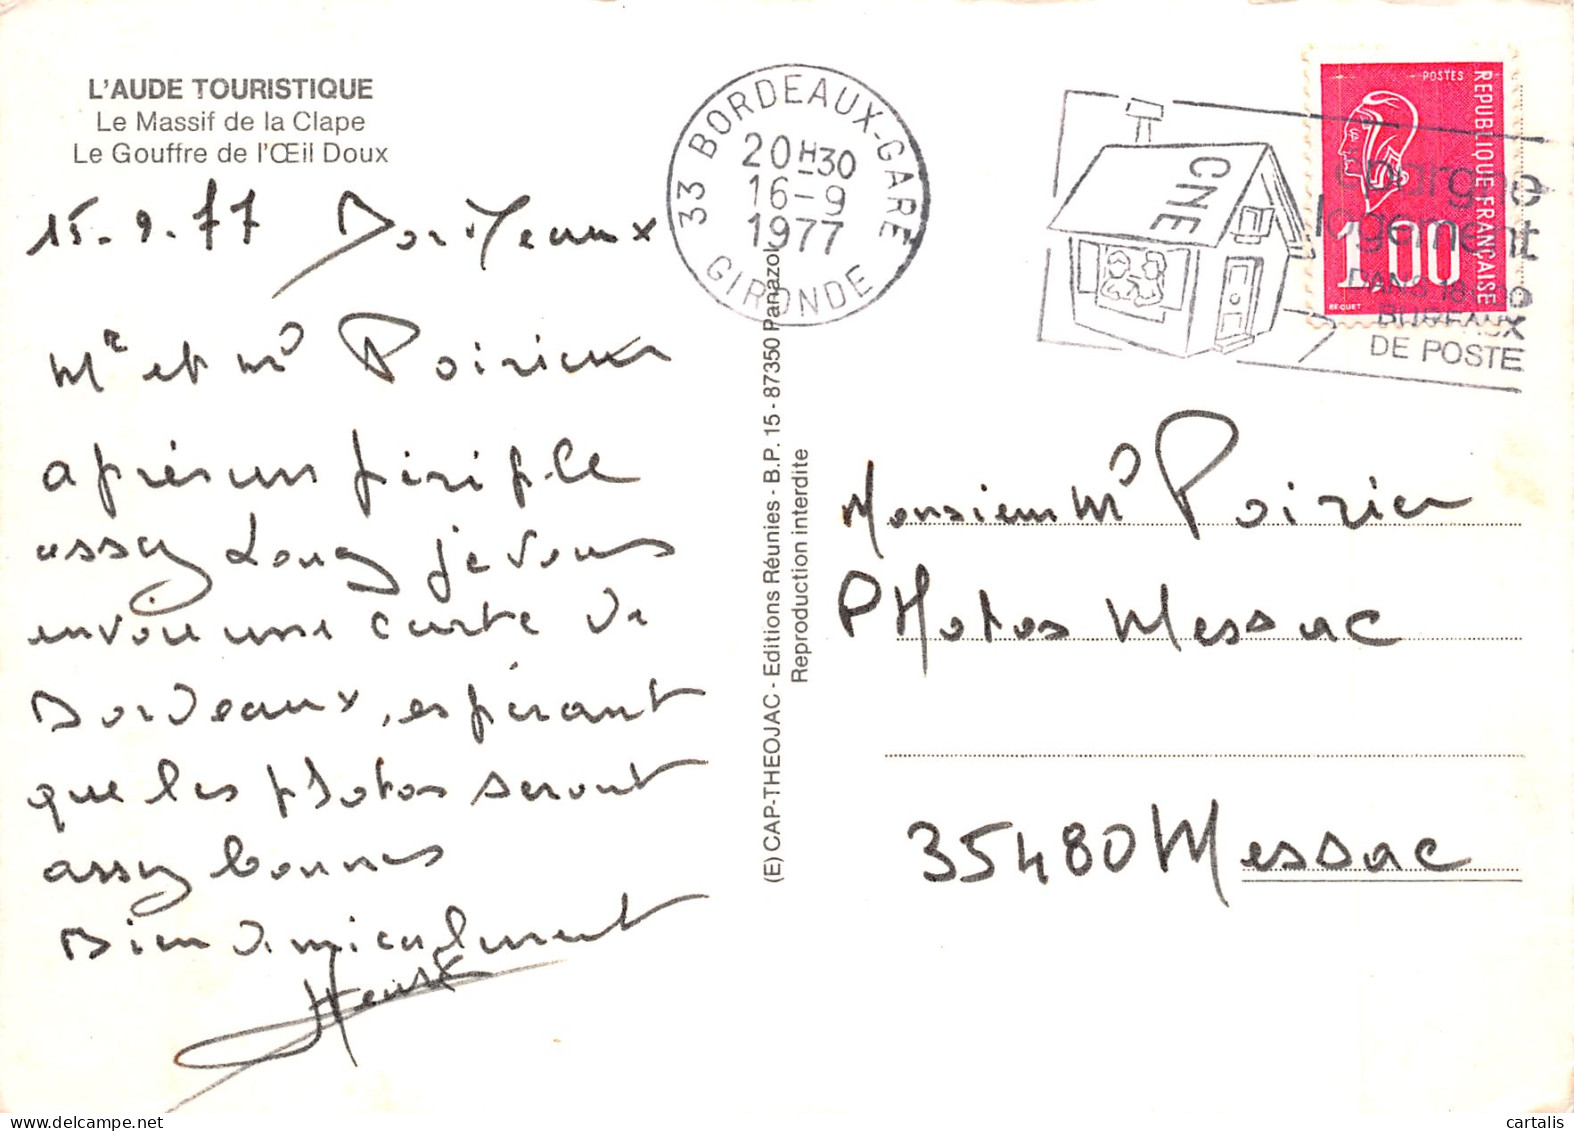 L'AUDE TOURISTIQUE
Le Massif de la Clape
Le Gouffre de l'Œil Doux
15.9.77 Bordeaux
Me et Mr Poirier
après un périple
assez long je vous
envoie une carte de
Bordeaux, espérant
que les photos seront
assez bonnes
Bien amicalement
(E) CAP-THEOJAC - Editions Réunies - B.P. 15 - 87350 Panazol
Reproduction interdite
33 BORDEAUX-GARE
20H30
16-9
1977
GIRONDE
CNE
épargne
logement
DANS 18000
BUREAUX
DE POSTE
POSTES
REPUBLIQUE FRANÇAISE
1,00
BEQUET
Monsieur Mr Poirier
PHotos Messac
35480 Messac
cartalis